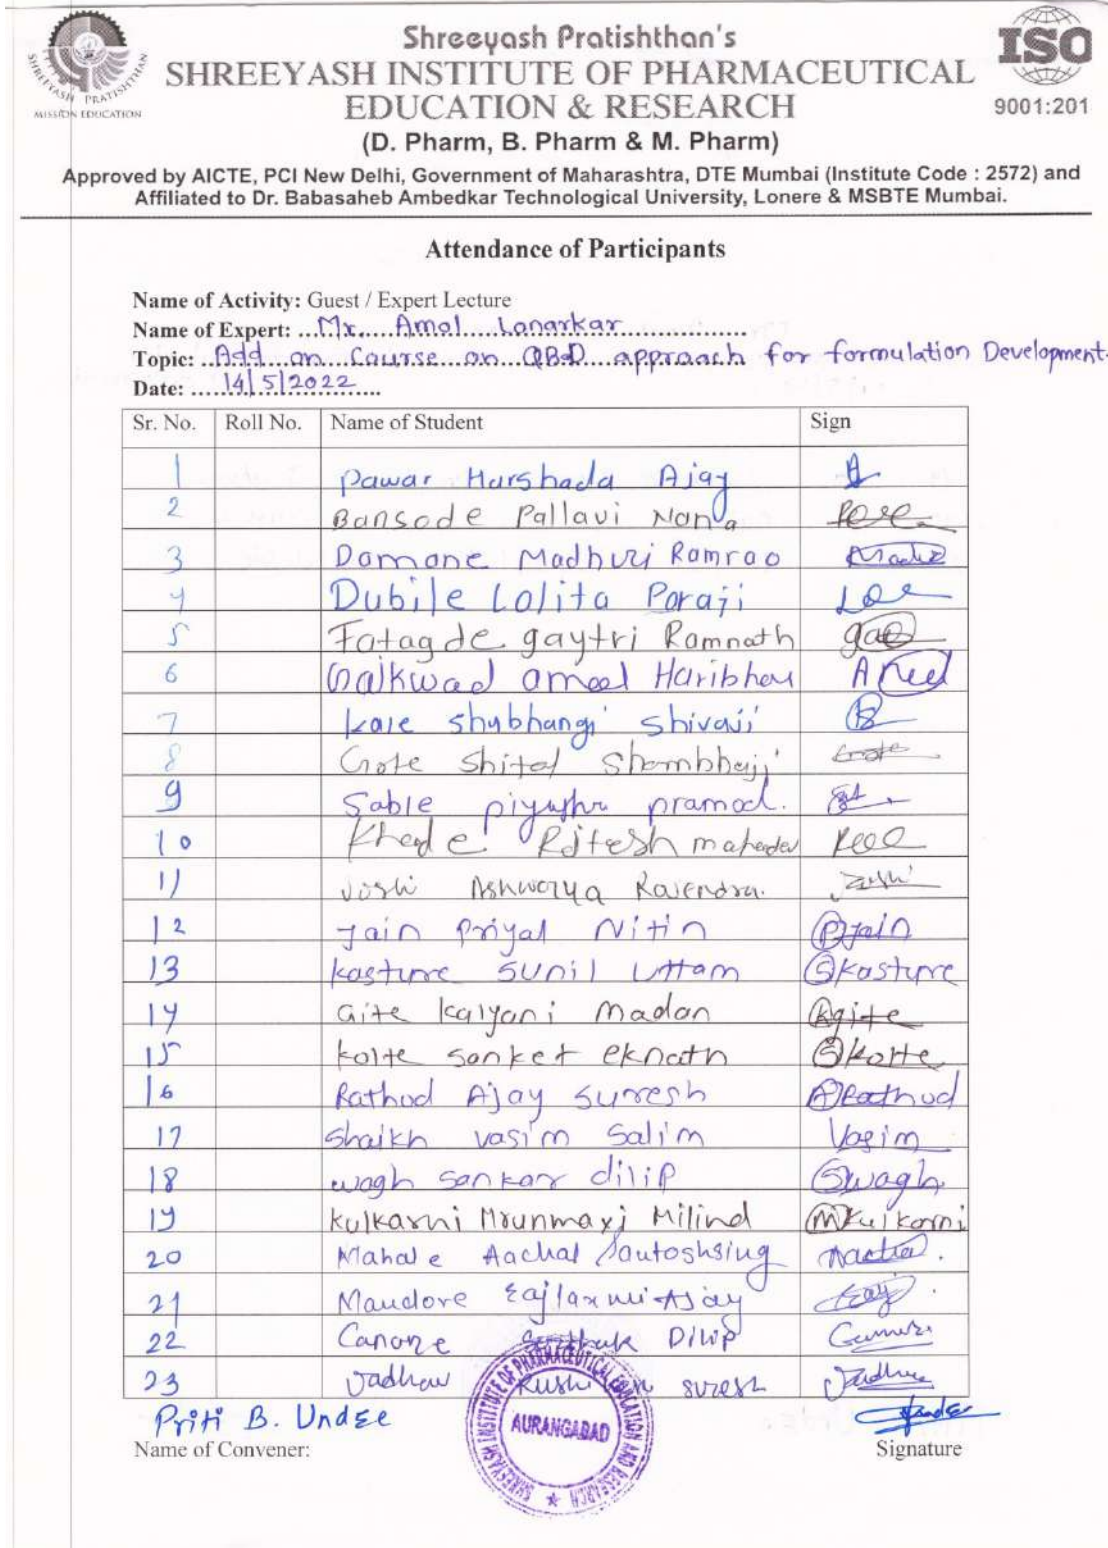 Shreeyash Pratishthan's
SHREEYASH INSTITUTE OF PHARMACEUTICAL
EDUCATION & RESEARCH
(D. Pharm, B. Pharm & M. Pharm)
Approved by AICTE, PCI New Delhi, Government of Maharashtra, DTE Mumbai (Institute Code : 2572) and
Affiliated to Dr. Babasaheb Ambedkar Technological University, Lonere & MSBTE Mumbai.
SHREEYASH PRATISHTHAN
MISSION EDUCATION
ISO
9001:201
Attendance of Participants
Name of Activity: Guest / Expert Lecture
Name of Expert: Mr. Amol Lonarkar
Topic: Add on Course on QBD approach for formulation Development.
Date: 14/5/2022
Sr. No. Roll No. Name of Student Sign
1 Pawar Harshada Ajay
2 Bansode Pallavi Nana
3 Damane Madhuri Ramrao
4 Dubile Lolita Poraji
5 Fatagde gaytri Ramnath
6 Gaikwad ameel Haribhau
7 kale shubhangi shivaji
8 Gote Shital Shambhaji
9 Sable piyusha pramod.
10 Khede Ritesh mahadev
11 Joshi Ashwarya Rajendra. Joshi
12 Jain Priyal Nitin PJain
13 kasture sunil Uttam Skasture
14 Gite kalyani madan Kgite
15 kolte sanket eknath Skolte
16 Rathod Ajay suresh ARathod
17 Shaikh vasim Salim Vasim
18 wagh sankar dilip Swagh
19 kulkarni Mrunmayi Milind Mkulkarni
20 Mahale Aachal Santoshsing
21 Mandore Rajlaxmi Ajay
22 Canore Dilip
23 Jadhav suresh Jadhav
Priti B. Undee
Name of Convener: Signature
SHREEYASH INSTITUTE OF PHARMACEUTICAL EDUCATION AND RESEARCH
AURANGABAD